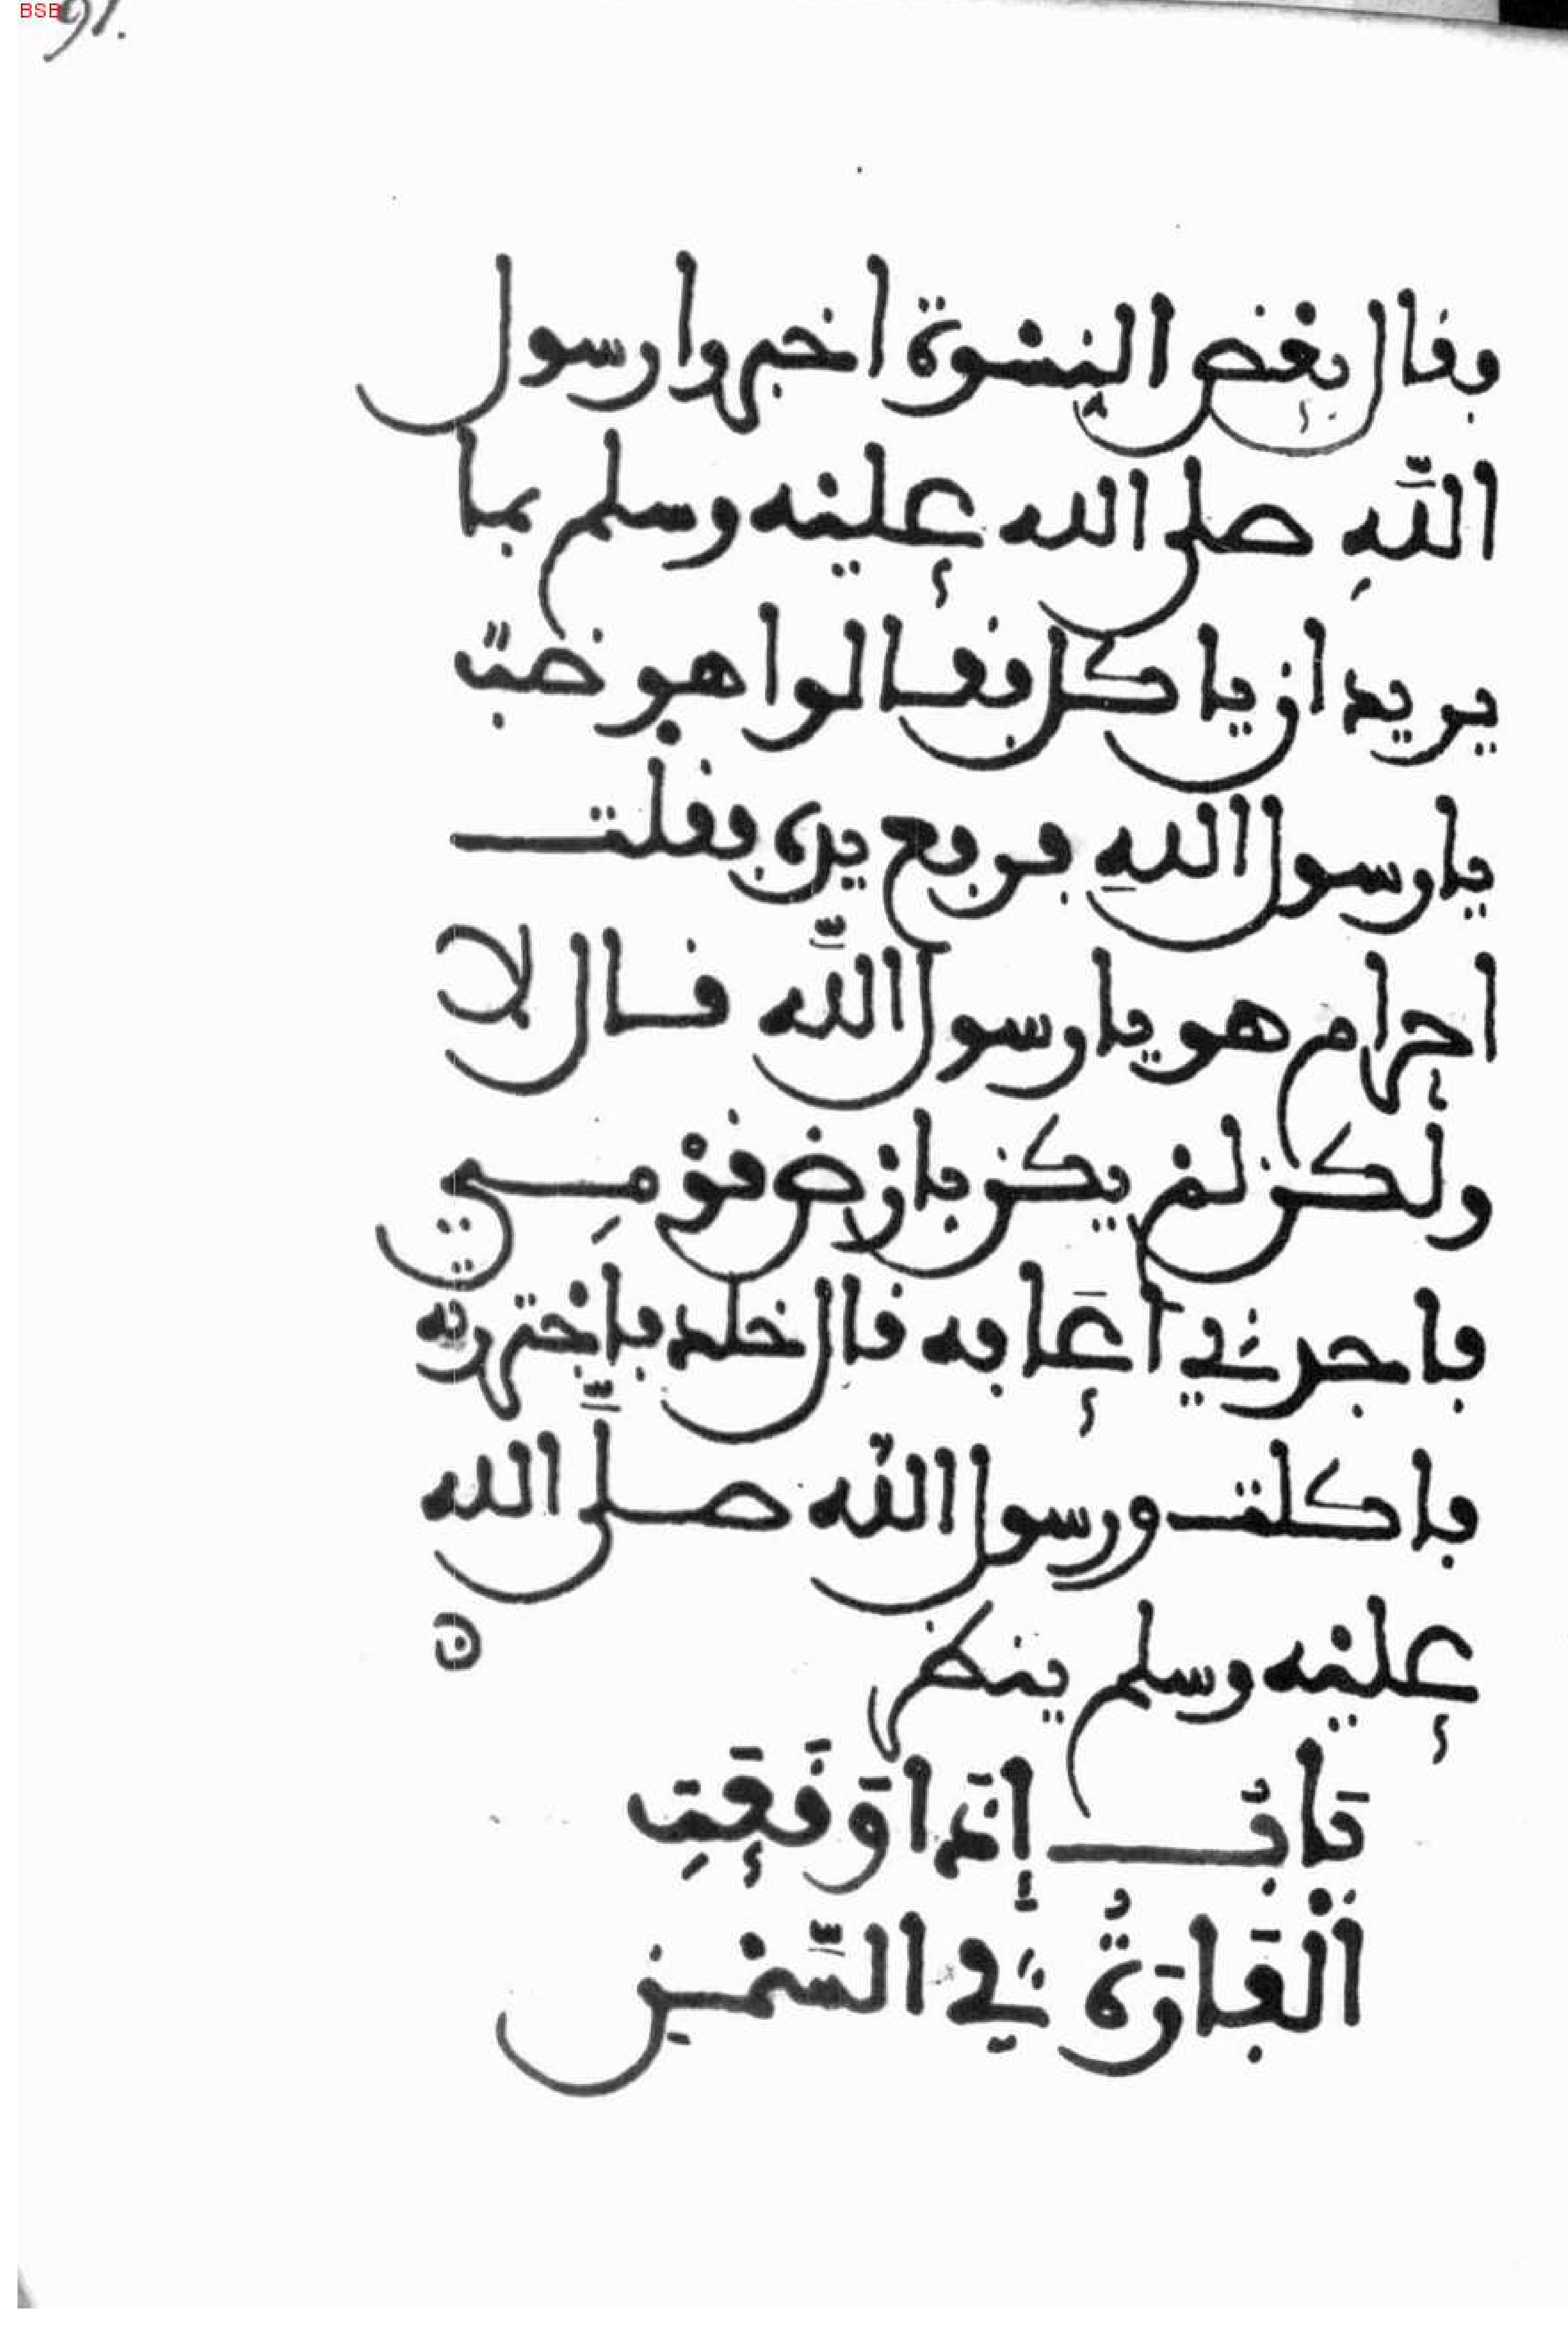 91.
فقال بعض النسوة اخبروا رسول
اللّهِ صلى الله عليه وسلم بما
يريد ان ياكل فقالوا هو ضبّ
يا رسول اللهِ فرفع يده فقلت
احرام هو يا رسول اللّه قال لا
ولكن لمْ يكن بارْض قوْمِي
فاجدني اعَافه قال خلد فاجْتررته
فاكلت ورسول اللّه صلّى الله
عليْه وسلم ينظر
بَابٌ إِذَا وَقَعَتِ
الْفَارَةُ فِي السَّمْنِ
BSB